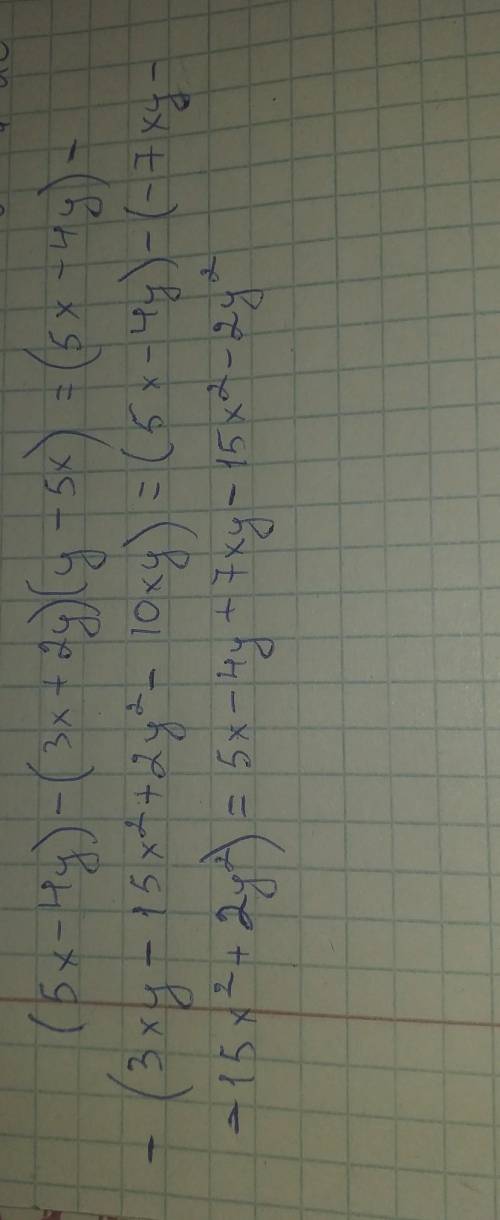 (5x-4y)-(3x+2y)(y-5x)=(5x-4y)-
-(3xy-15x²+2y²-10xy)=(5x-4y)-(-7xy-
-15x²+2y²)=5x-4y+7xy-15x²-2y²